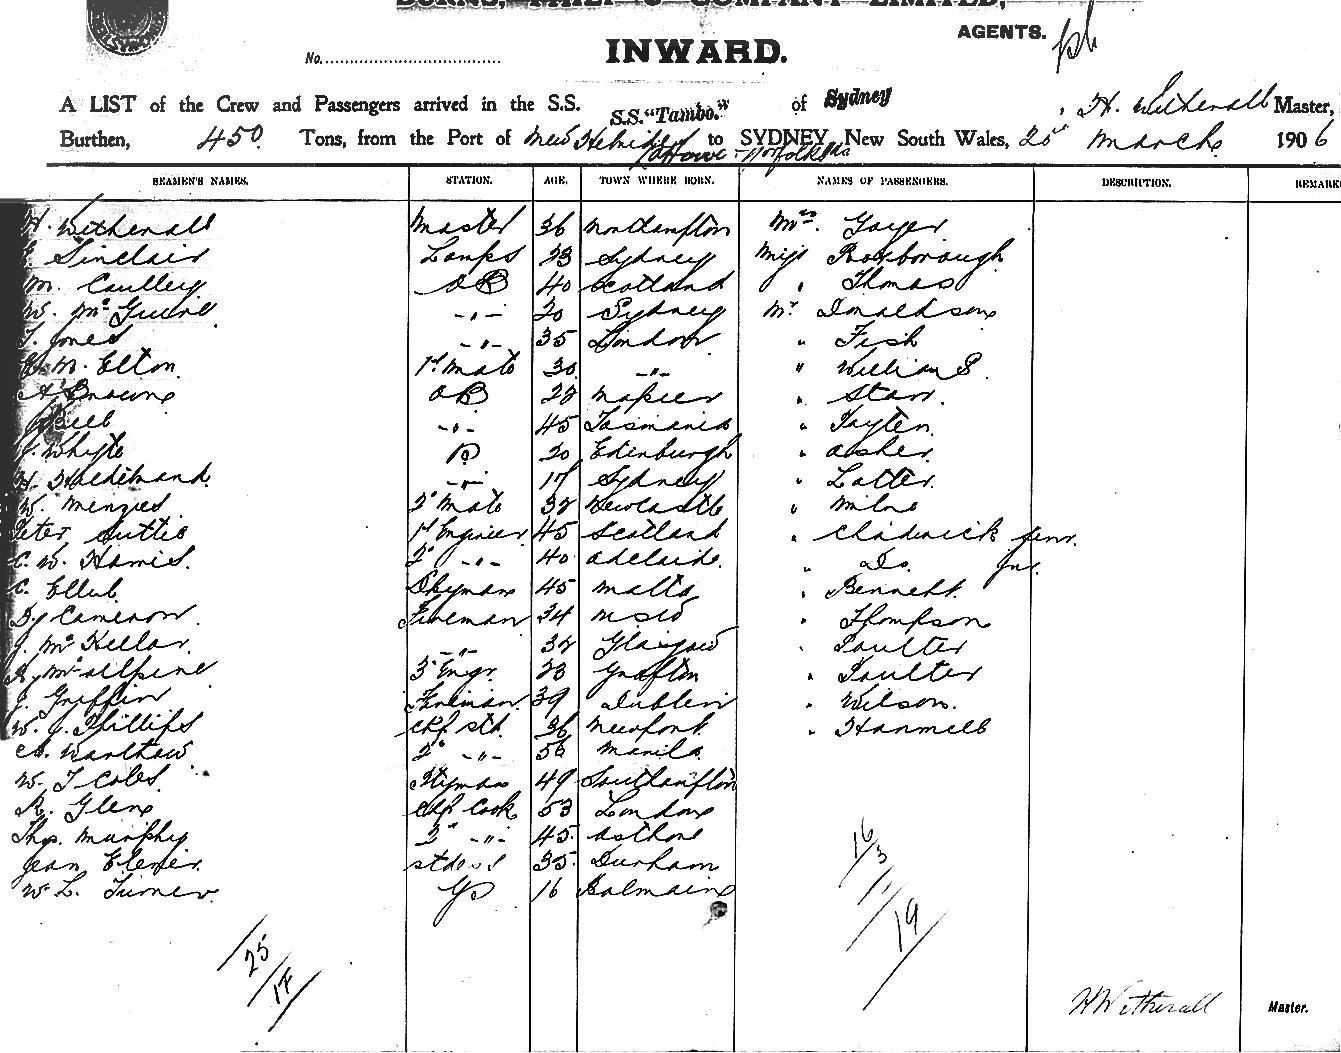 BURNS, PHILP & COMPANY LIMITED,
AGENTS.
INWARD.
No.
A LIST of the Crew and Passengers arrived in the S.S. S.S. "Tambo." of Sydney, H. Witherall Master,
Burthen, 450 Tons, from the Port of New Hebrides to SYDNEY, New South Wales, 25th March 1906
Ld Howe & Norfolk Is
SEAMEN'S NAMES. STATION. AGE. TOWN WHERE BORN. NAMES OF PASSENGERS. DESCRIPTION. REMARK
H. Witherall Master 36 Northampton Mrs. Gayer
Sinclair Lamps 23 Sydney Miss Roxborough
M. Caulley AB 40 Scotland " Thomas
W. McGuire -"- 20 Sydney Mr Donaldson
T. Jones -"- 35 London " Fish
M. Elton 1st Mate 30 -"- " Williams
A. Browne AB 28 Napier " Starr
-"- 45 Tasmania " Tayten
J. Whyte 20 Edinburgh " Asher
H. -"- 17 Sydney " Latter
W. Menzies 2d Mate 32 Newcastle " Milne
Peter Suttie 1st Engineer 45 Scotland " Chadwick senr.
C. W. Harris 2d -"- 40 Adelaide " Do. Jnr.
C. Ellul 45 Malta " Bennett
D. Cameron Fireman 34 NSW " Thompson
J. McKellar -"- 32 Glasgow " Poulter
McAlpine 3d Engr. 23 Grafton " Poulter
J. Griffin Fireman 39 Dublin " Wilson
W. J. Phillips Chf Std. 36 Newport " Hammell
2d -"- 56 Manila
W. T Coles 49 Southampton
R. Glenn Chf Cook 53 London
Thos. Murphy 2d -"- 45 Athlone
Jean stdess 35 Durham
W. L. Turner 16 Balmain
16/3/1/19
25/17
H Witherall Master.